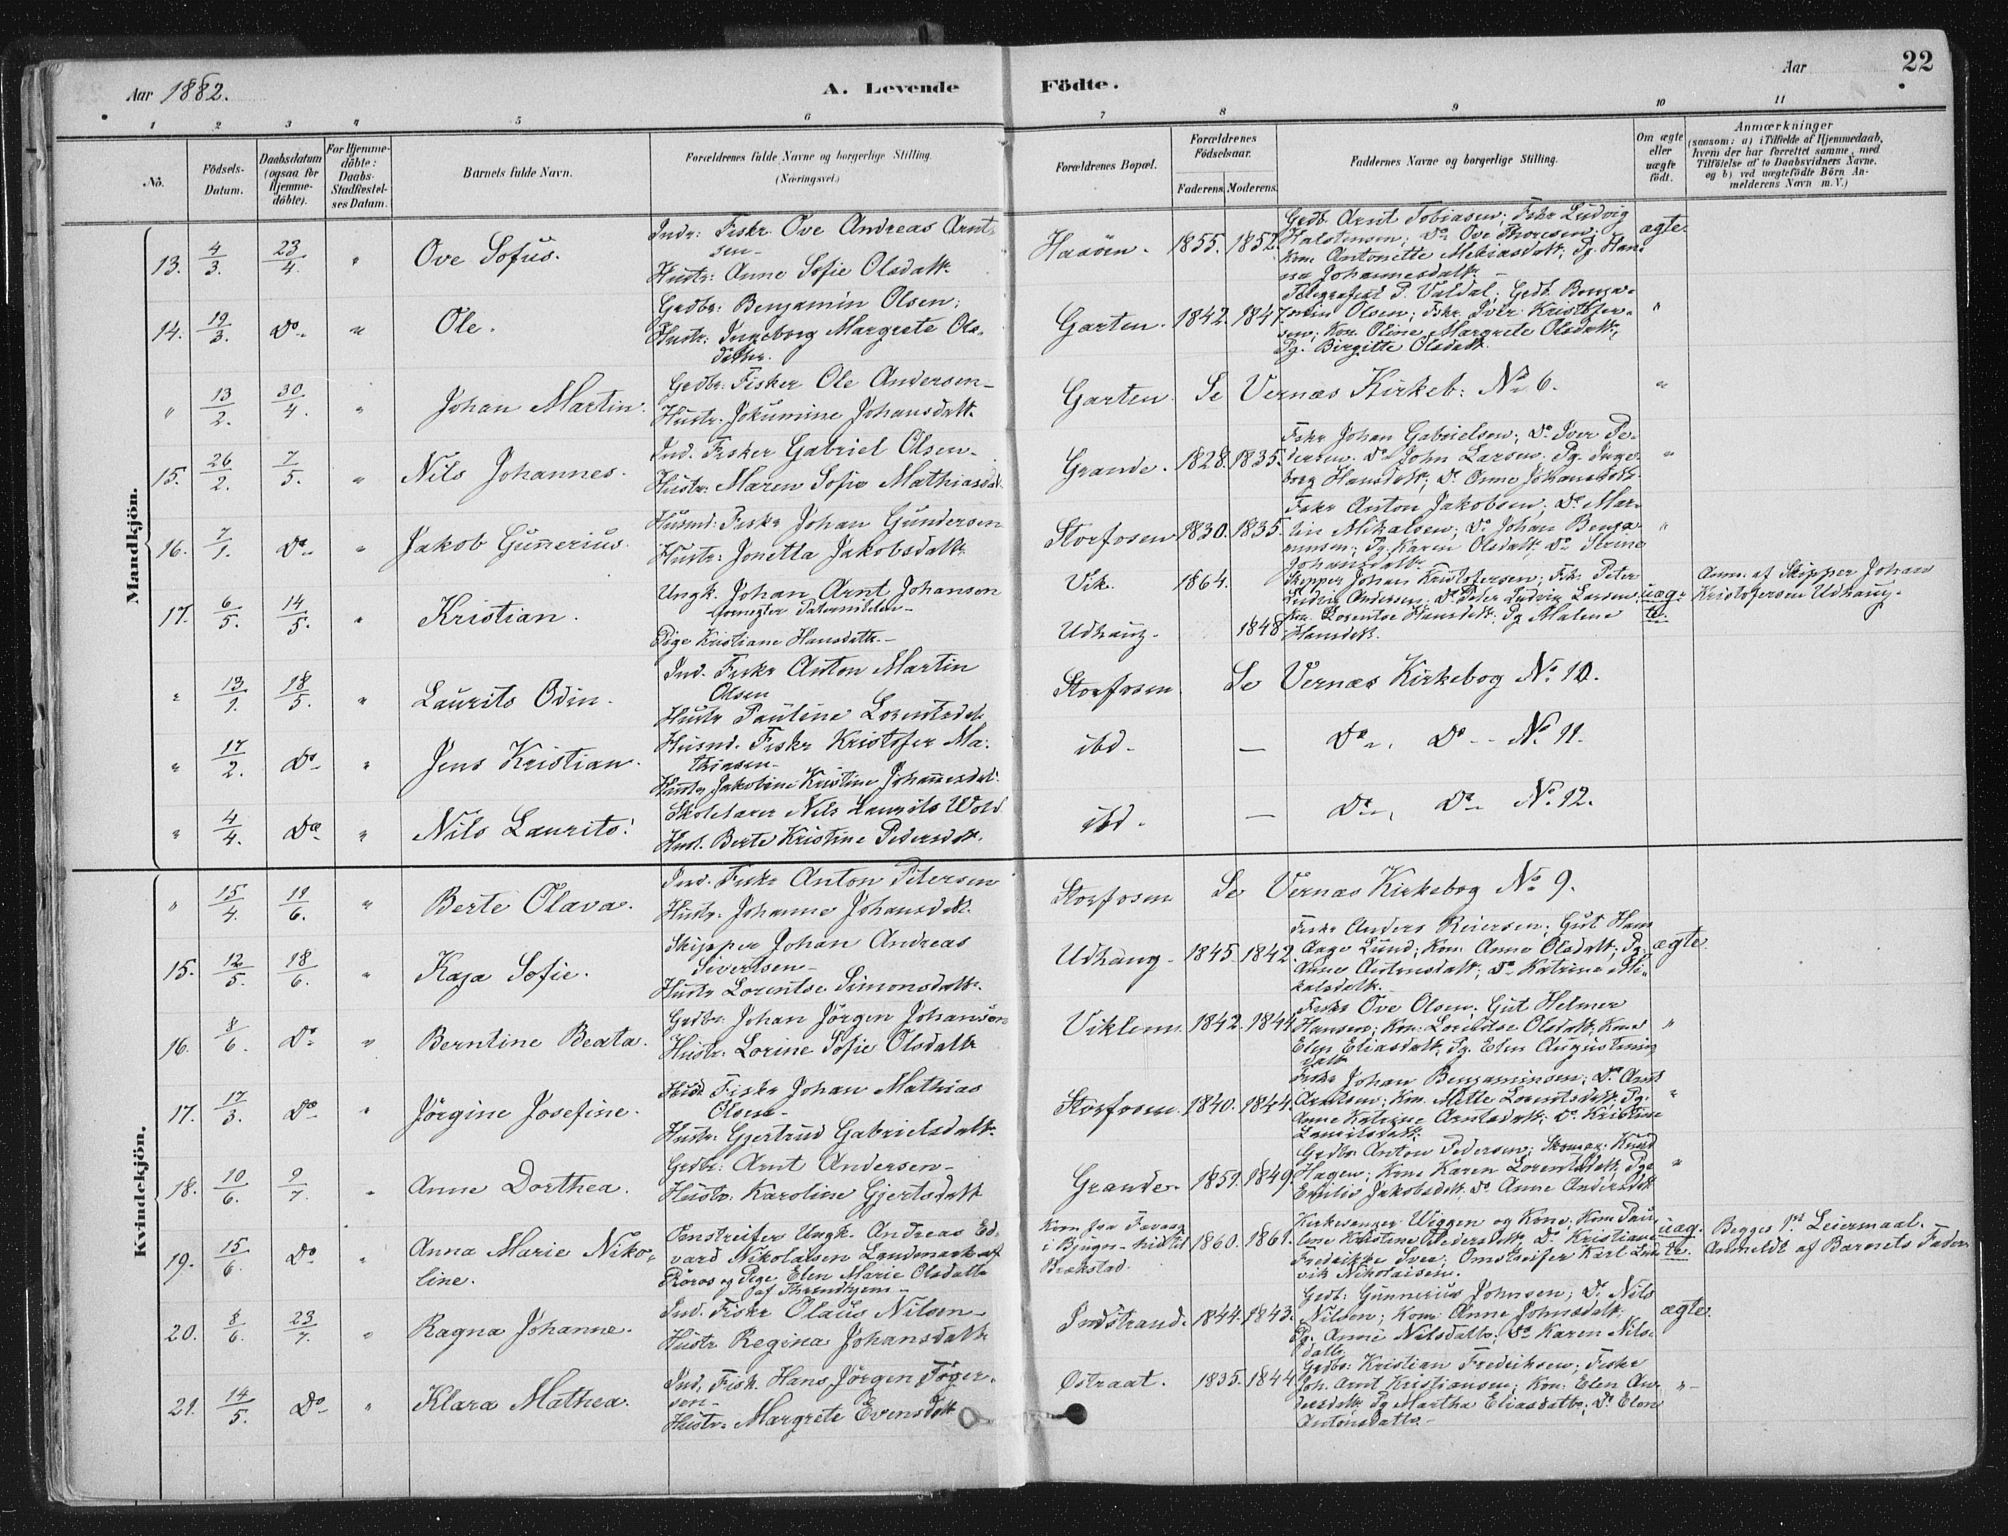 Aar 1882.
A. Levende Födte.
Aar
22
1 2 3 4 5 6 7 8 9 10 11
No.
Födsels-Datum.
Daabsdatum (ogsaa for Hjemme-döbte).
For Hjemme-döbte: Daabs-Stadfæstel-ses Datum.
Barnets fulde Navn.
Forældrenes fulde Navne og borgerlige Stilling.
(Næringsvei.)
Forældrenes Bopæl.
Forældrenes Födselsaar.
Faderens. Moderens.
Faddernes Navne og borgerlige Stilling.
Om ægte eller uægte födt.
Anmærkninger
(saasom: a) i Tilfælde af Hjemmedaab,
hvem der har forrettet samme, med
Tilföielse af to Daabsvidners Navne.
og b) ved uægtefödte Börn An-
melderens Navn m. V.)
Mandkjön.
13. 4/3. 23/4. " Ove Sofus.
Indr: Fiskr Ove Andreas Arnt-
sen-
Hustr: Anne Sofie Olsdatt.
Haaöen. 1855. 1852.
Grdb. Arnt Tobiasen; Fskr Ludvig
Halstensen; Do Ove Thoresen;
Kon. Antonette Mekiasdatt; Pg. Han-
na Johannesdatt.
ægte.
14. 19/3. Do " Ole.
Grdbr: Benjamin Olsen;
Hustr: Ingeborg Margrete Ols-
datter.
Garten. 1842. 1847.
Telegrafist P. Valdal; Grdb. Benja-
min Olsen; Fskr. Iver Kristofer-
sen; Kon. Oline Margrete Olsdatt;
Pg. Birgitte Olsdatt.
"
" 13/2. 30/4. " Johan Martin.
Grdbr: Fisker Ole Andersen-
Hustr. Jokumine Johansdatt.
Garten Se Vernæs Kirkeb: No 6. "
15. 26/2. 7/5. " Nils Johannes.
Ind. Fisker Gabriel Olsen-
Hustr: Maren Sofie Mathiasdat.
Grande. 1828. 1835.
Fskr Johan Gabrielsen; Do Iver Pe-
dersen. Do John Larsen. Pg. Inge-
borg Hansdatt; Do Anne Johansdatt.
"
16. 7/1. Do " Jakob Gunnerius.
Husmd: Fiskr Johan Gundersen
Hustr: Jonetta Jakobsdatt.
Storfosen 1830. 1835.
Fskr Anton Jakobsen; Do Mar-
tin Mikalsen; Do Johan Benja-
minsen; Pg. Karen Olsdatt. Do Serine
Johansdatt.
"
17. 6/5. 14/5. " Kristian.
Ungk. Johan Arnt Johansen
Pige Kristiane Hansdatt.-
Vik. 1864.
Udhaug. 1848
Skipper Johan Kristofersen; Fsk. Peter
Ludvig Andersen. Do Peter Ludvig Larsen
Kon. Lorentse Hansdatt. Pg Malene
Hansdatt.
uæg-
te.
Anm. af Skipper Johan
Kristofersen Udhaug.
" 13/1. 18/5. " Laurits Odin.
Ind. Fiskr Anton Martin
Olsen
Hustr Pauline Lorentsdatt.
Storfosen. Se Vernæs Kirkebog No. 10.
" 17/2. Do " Jens Kristian.
Husmd. Fiskr Kristofer Ma-
thiasen-
Hustr Jakobine Kristine Johannesdat.
ibd. — Do, Do - No. 11.
" 4/4. Do " Nils Laurits.
Skolelærer Nils Laurits Wold
Hust. Berte Kristine Pedersdatt.
ibd. — Do, Do No. 12.
Kvindekjön.
" 15/4. 11/6. " Berte Olava.
Ind. Fiskr Anton Petersen
Hustr: Johanne Johansdatt.
Storfosen Se Vernæs Kirkebog No 9.
15. 12/5. 18/6. " Kaja Sofie.
Skipper Johan Andreas
Sivertsen-
Hustr Lorentse Simonsdatt.
Udhaug 1845. 1842.
Fiskr Anders Reiersen; Gut Hans
Aage Lund; Kon. Anne Olsdatt; Pg.
Anne Antonsdatt; Do Katrine Mi-
kalsdatt.
ægte.
16. 8/6. Do " Berntine Beata.
Grdbr: Johan Jörgen Johansen
Hustr: Lorine Sofie Olsdatt
Viklem. 1842. 1844.
Fiskr Ove Olsen; Gut Helmer
Hansen; Kon. Lorentse Olsdatt; Kone
Elen Eliasdatt, Pg. Elen Augustinus
datt
"
17. 17/3. Do " Jörgine Josefine.
Husm Fiskr Johan Mathias
Olsen-
Hustr: Gjertrud Gabrielsdatt.
Storfosen 1840. 1844.
Fiskr Johan Benjaminsen; Do Arnt
Arntsen; Kon. Mette Lorentsdatt; Pg.
Anne Katrine Arntsdatt; Do Kristine
Lauritsdatt.
"
18. 10/6. 9/7. " Anne Dorthea.
Grdbr: Arnt Andersen-
Hustr: Karoline Gjertsdatt
Grande. 1851. 1849.
Grdbr Anton Pedersen; Skomar. Knud
Hagen; Kone Karen Lorentsdatt; Pge
Emilie Jakobsdatt. Do Anne Andersdatt
"
19. 15/6. Do " Anna Marie Niko-
line.
Omstreifer Ungk. Andreas Ed-
vard Nikolaisen Landmark af
Röros og Pige Elen Marie Olsdatt
af Throndhjem-
i Bjugn - hid til
Brækstad.
1860. 1861.
Kirkesanger Wiggen og Kone; Kone Pau-
line Kristine Pedersdatt. Do Kristiane
Fredrikke Svee; Omstreifer Karl Lud-
vik Nikolaisen.
uæg-
te.
Begges 1ste Leiermaal.
Anmeldt af Barnets Fader
20. 8/6. 23/7. " Ragna Johanne.
Ind. Fiskr Olaus Nilsen-
Hustr Regina Johansdatt
Indstrand. 1844. 1843.
Grdb: Gunnerius Johnsen; Do Nils
Nilsen; Kone Anne Johnsdatt;
Pg. Anne Nilsdatt; Do Karen Nils-
datt.
ægte.
21. 14/5. Do " Klara Mathea.
Ind. Fisk. Hans Jörgen Töger-
sen-
Hustr: Margrete Evensdatt
Østraat. 1835. 1844
Grdbr: Kristian Fredriksen; Fiskr
Joh. Arnt Kristiansen; Kon. Elen An-
dersdatt; Pg Martha Eliasdatt; Do Elen
Antonsdatt.-
"